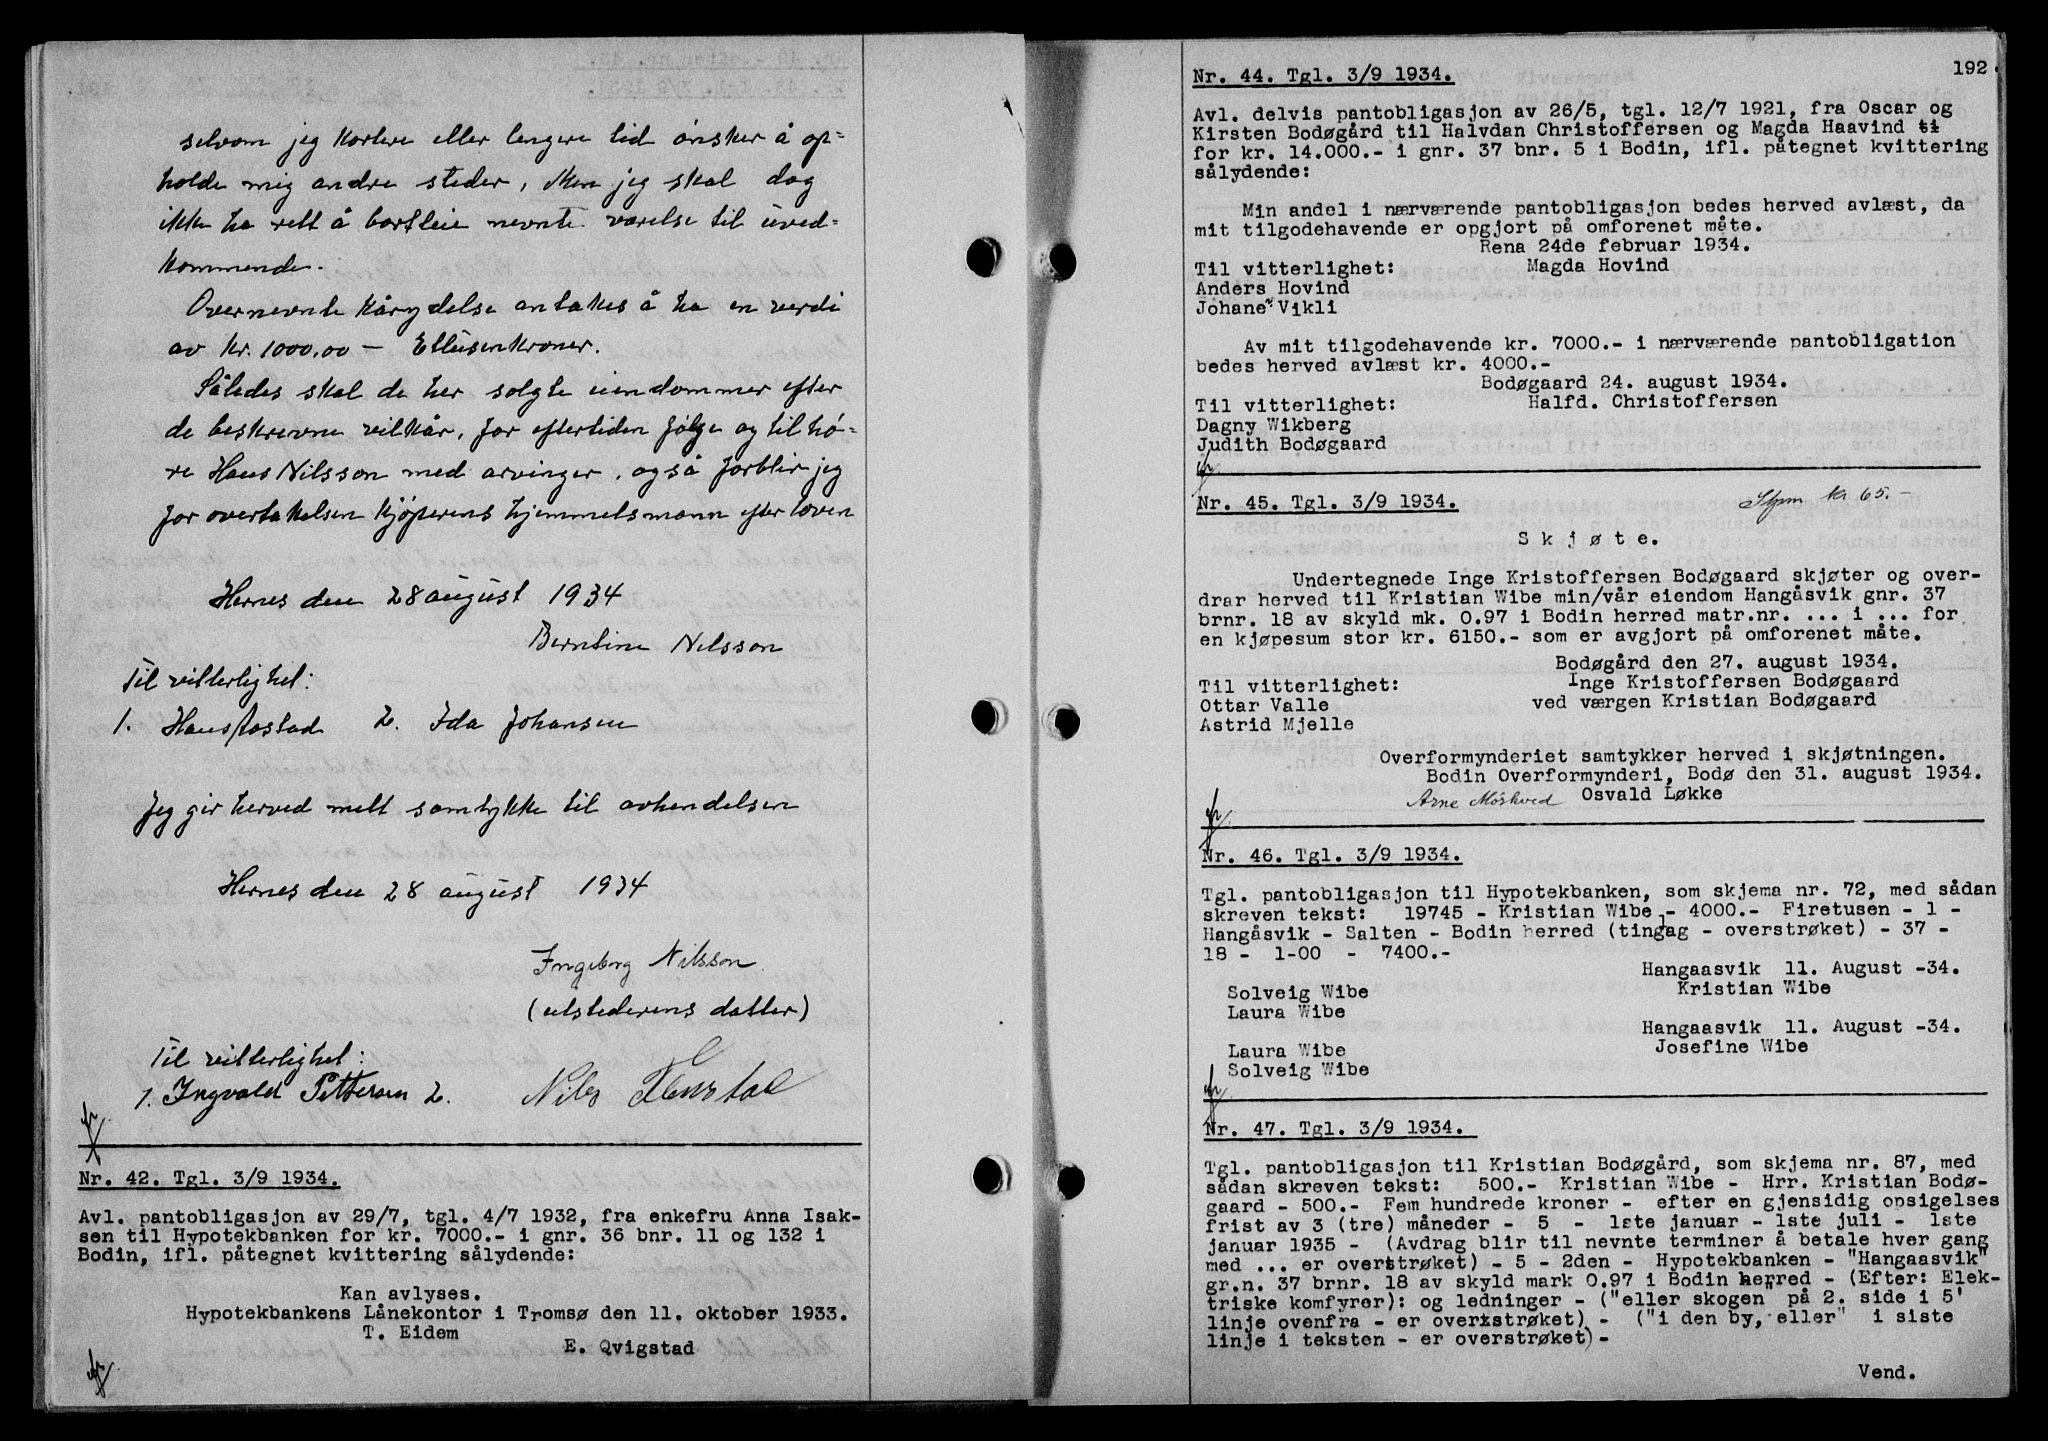 selvom jeg kortere eller lengere tid ønsker å op=
holde mig andre steder, Men jeg skal dog
ikke ha rett å bortleie nevnte værelse til uved=
kommende.
Overnevnte kårydelse antakes å ha en verdi
av kr. 1000,00 – Ettusenkroner.
Således skal de her solgte eiendommer efter
de beskrevne vilkår, for eftertiden følge og tilhø=
re Hans Nilsson med arvinger, også forblir jeg
for overtakelsen kjøperens hjemmelsmann efter loven
Hernes den 28 august 1934
Berntine Nilsson
Til vitterlighet:
1. Hans 2. Ida Johansen
Jeg gir herved mitt samtykke til avhendelsen
Hernes den 28 august 1934
Ingeborg Nilsson
(utstederens datter)
Til vitterlighet:
1. Ingvald Pettersen 2. Nils
Nr. 42. Tgl. 3/9 1934.
Avl. pantobligasjon av 29/7, tgl. 4/7 1932, fra enkefru Anna Isak-
sen til Hypotekbanken for kr. 7000.- i gnr. 36 bnr. 11 og 132 i
Bodin, ifl. påtegnet kvittering sålydende:
Kan avlyses.
Hypotekbankens Lånekontor i Tromsø den 11. oktober 1933.
T. Eidem
E. Qvigstad
192.
Nr. 44. Tgl. 3/9 1934.
Avl. delvis pantobligasjon av 26/5, tgl. 12/7 1921, fra Oscar og
Kirsten Bodøgård til Halvdan Christoffersen og Magda Haavind ti
for kr. 14.000.- i gnr. 37 bnr. 5 i Bodin, ifl. påtegnet kvittering
sålydende:
Min andel i nærværende pantobligasjon bedes herved avlæst, da
mit tilgodehavende er opgjort på omforenet måte.
Rena 24de februar 1934.
Til vitterlighet: Magda Hovind
Anders Hovind
Johane Vikli
Av mit tilgodehavende kr. 7000.- i nærværende pantobligation
bedes herved avlæst kr. 4000.-
Bodøgaard 24. august 1934.
Til vitterlighet: Halfd. Christoffersen
Dagny Wikberg
Judith Bodøgaard
Nr. 45. Tgl. 3/9 1934. Stpm kr 65.-
Skjøte.
Undertegnede Inge Kristoffersen Bodøgaard skjøter og over-
drar herved til Kristian Wibe min/vår eiendom Hangåsvik gnr. 37
brnr. 18 av skyld mk. 0.97 i Bodin herred matr.nr. ... i ... for
en kjøpesum stor kr. 6150.- som er avgjort på omforenet måte.
Bodøgård den 27. august 1934.
Til vitterlighet: Inge Kristoffersen Bodøgaard
Ottar Valle ved værgen Kristian Bodøgaard
Astrid Mjelle
Overformynderiet samtykker herved i skjøtningen.
Bodin Overformynderi, Bodø den 31. august 1934.
Arne Mörkved Osvald Løkke
Nr. 46. Tgl. 3/9 1934.
Tgl. pantobligasjon til Hypotekbanken, som skjema nr. 72, med sådan
skreven tekst: 19745 - Kristian Wibe - 4000.- Firetusen - 1 -
Hangåsvik - Salten - Bodin herred (tinglag - overstrøket) - 37 -
18 - 1-00 - 7400.-
Hangaasvik 11. August -34.
Solveig Wibe Kristian Wibe
Laura Wibe
Hangaasvik 11. August -34.
Laura Wibe Josefine Wibe
Solveig Wibe
Nr. 47. Tgl. 3/9 1934.
Tgl. pantobligasjon til Kristian Bodøgård, som skjema nr. 87, med
sådan skreven tekst: 500.- Kristian Wibe - Hrr. Kristian Bodø-
gaard - 500.- Fem hundrede kroner - efter en gjensidig opsigelses
frist av 3 (tre) måneder - 5 - 1ste januar - 1ste juli - 1ste
januar 1935 - (Avdrag blir til nevnte terminer å betale hver gang
med ... er overstrøket) - 5 - 2den - Hypotekbanken - "Hangaasvik"
gr.n. 37 brnr. 18 av skyld mark 0.97 i Bodin herred - (Efter: Elek-
triske komfyrer): og ledninger - ("eller skogen" på 2. side i 5'
linje ovenfra - er overstrøket) - ("i den by, eller" i siste
linje i teksten - er overstrøket)-
Vend.